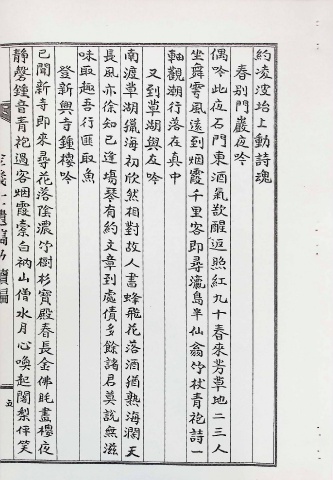 約淩波汕上動詩魂
春別門巖夜吟
偶吟此夜石門東酒氣歎醒返照紅九十春來芳草地二三人
坐舞雩風遠到烟霞千里客即尋瀛島半仙翁竹杖青袍詩一
軸觀潮行落在真中
又到草湖與友吟
南渡草湖獵海初欣然相對故人書蜂飛花落酒猶熟海濶天
長風亦徐知己逢場琴有約文章到處債多餘諸君莫說無滋
味取趣吾行匪取魚
登新興寺鍾樓吟
已聞新寺即來尋花落陰濃竹樹杉寶殿春長金佛眊畫樓夜
靜磬鍾音青袍過客烟霞槖白衲山僧水月心喚起闍梨伴笑
遺稿
續編
五